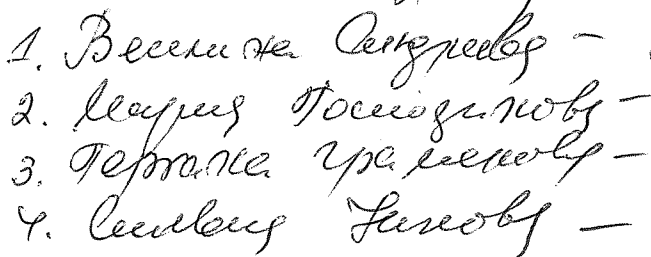 1. Величка Андреева –
2. Мария Господинова –
3. Гергана Граменова –
4. Силвия Янкова –